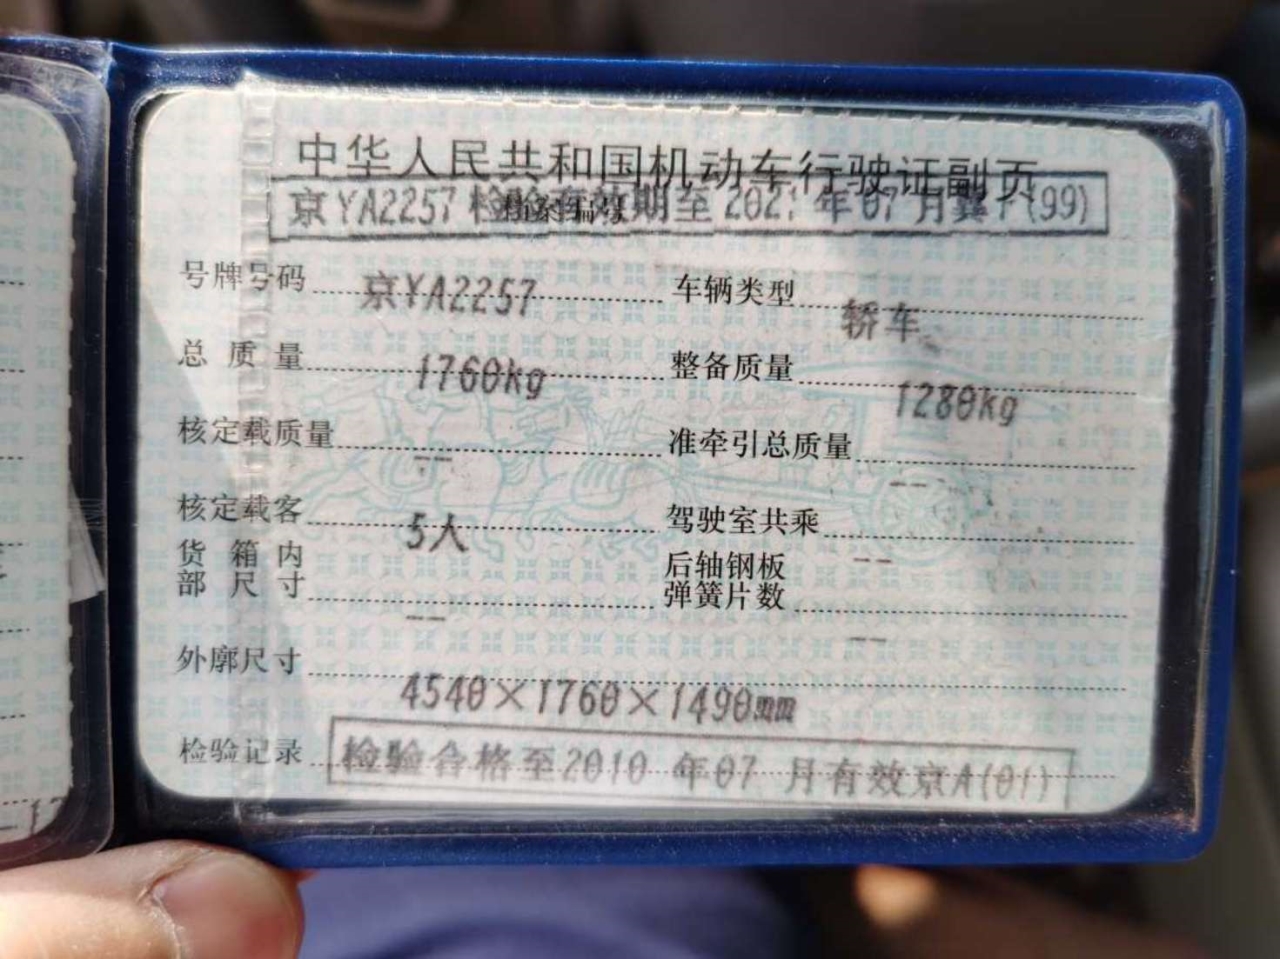 中华人民共和国机动车行驶证副页
京YA2257 检验有效期至 2021 年 07 月冀F(99)
档案编号
号牌号码 京YA2257 车辆类型 轿车
总质量 1760kg 整备质量 1280kg
核定载质量 -- 准牵引总质量 --
核定载客 5人 驾驶室共乘 --
货箱内部尺寸 -- 后轴钢板弹簧片数 --
外廓尺寸 4540×1760×1490mm
检验记录 检验合格至2010 年07 月有效京A(01)